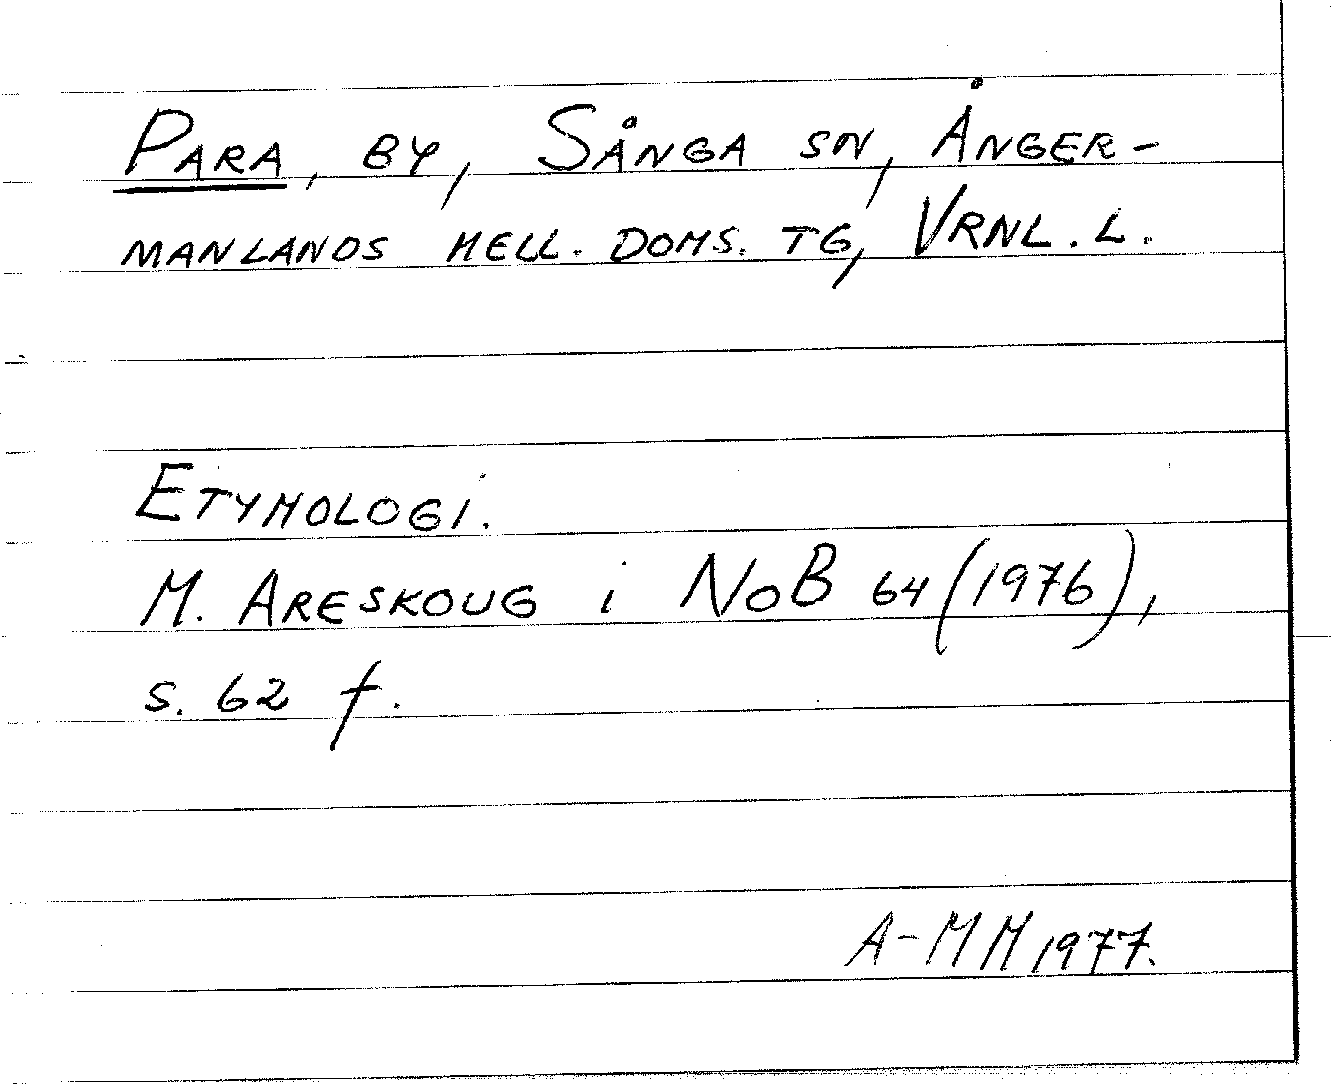 PARA, BY, SÅNGA SN, ÅNGER-
MANLANDS MELL. DOMS. TG, VRNL. L.
ETYMOLOGI.
M. ARESKOUG i NoB 64 (1976),
s. 62 f.
A-MM 1977.